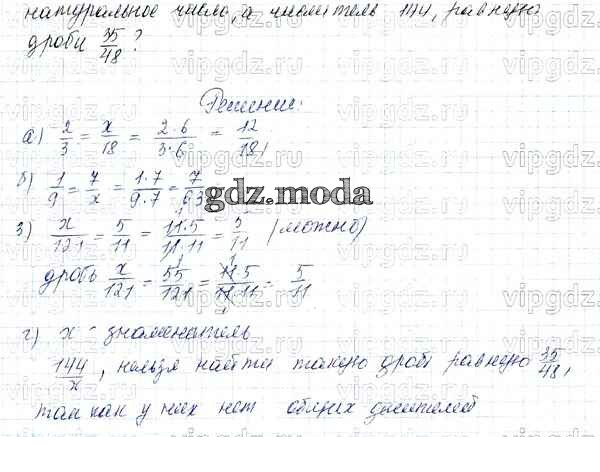 натуральное число, а числитель 144, равную
дроби 35/48 ?
Решение:
а) 2/3 = x/18 = 2·6/3·6 = 12/18,
б) 1/9 = 7/x = 1·7/9·7 = 7/63
gdz.moda
в) x/121 = 5/11 = 11·5/11·11 = 5/11 (можно)
дробь x/121 = 55/121 = 11·5/11·11 = 5/11
г) x - знаменатель
144/x, нельзя найти такую дробь равную 35/48,
так как у них нет общих делителей
vipgdz.ru